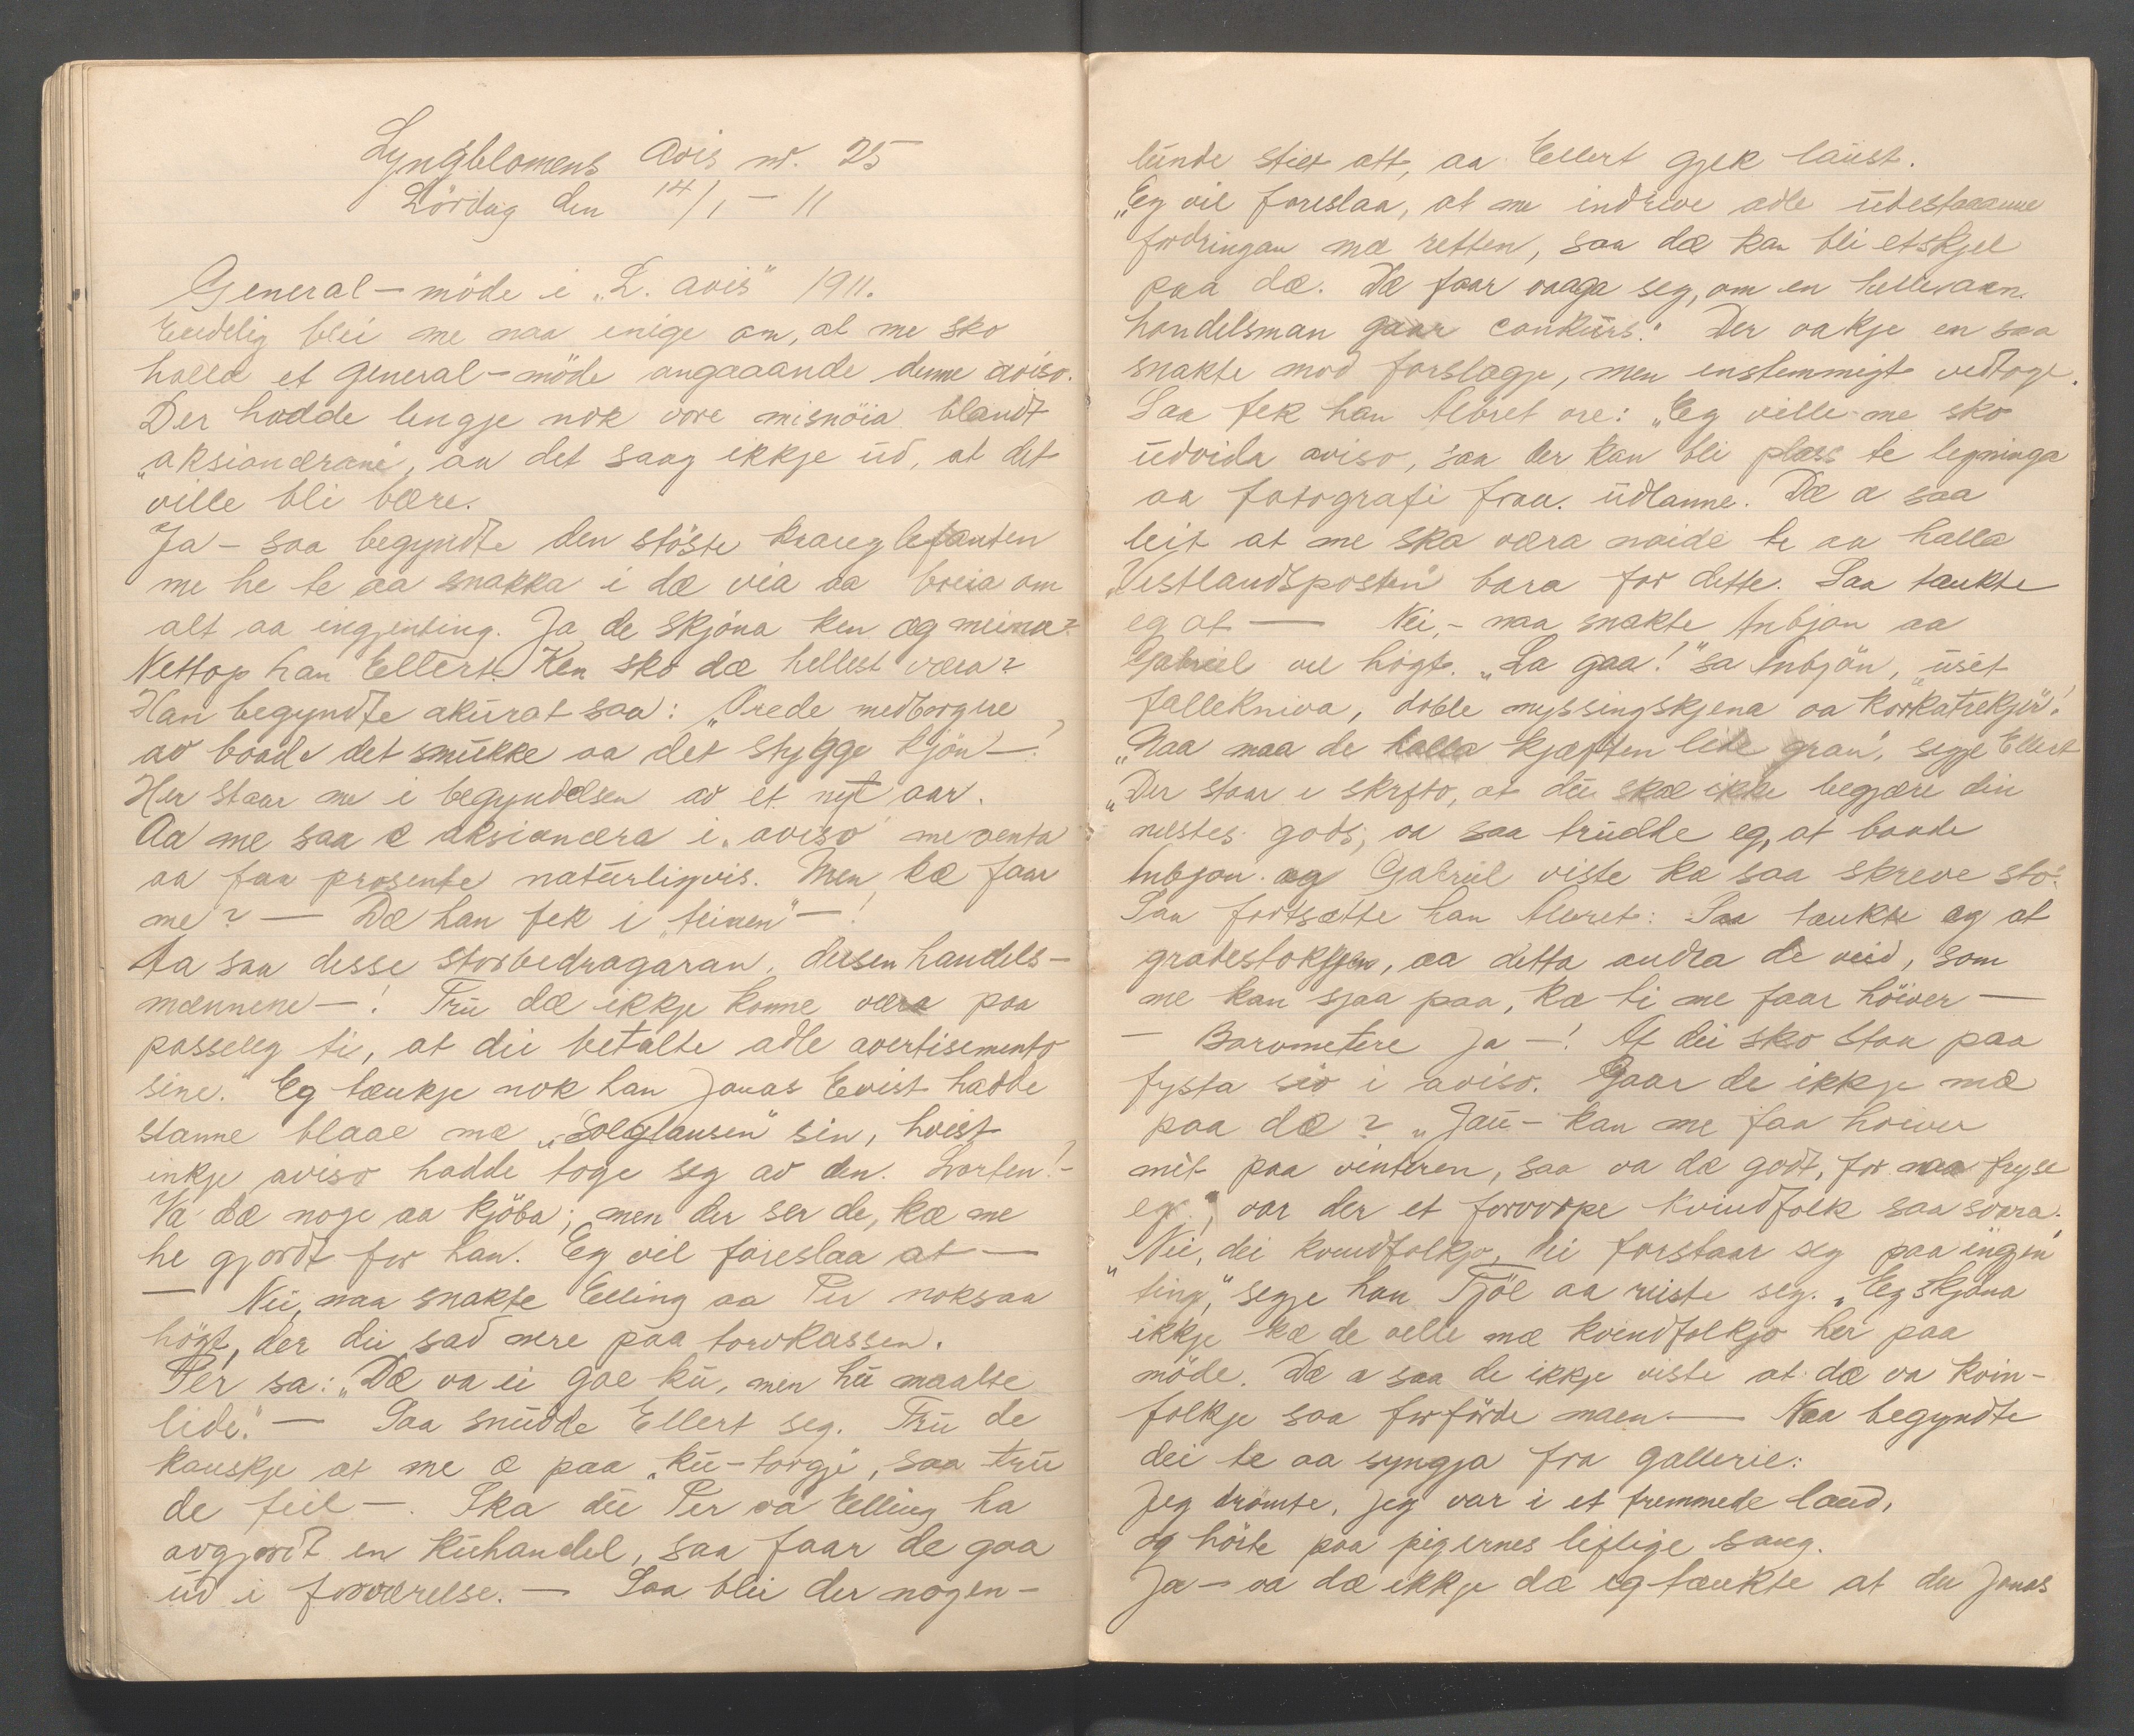 Lyngblomens avis nr. 25
Lördag den 14/1 - 11
General-möde i „L. avis" 1911.
Endelig blei me naa enige om, at me sko
halla et general-möde angaaande denne aviso.
Der hadde lengje nok vore misnöia blandt
„aksionærane", aa det saag ikkje ud, at det
ville bli bære.
Ja - saa begyndte den störste kranglefanten
me he te aa snakka i dæ via aa breia om
alt aa ingjenting. Ja de skjöna ken eg meina?
Nettop han Ellert. Ken sko dæ hellest væra?
Han begyndte akurat saa: „Ærede medborgere
av baade det smukke aa det stygge kjön-!
Her staar me i begyndelsen av et nyt aar.
Aa me saa e aksionæra i „aviso" me venta
aa faa prosente naturligvis. Men, kæ faar
me? - Dæ han fek i „teinen" -!
Aa saa desse storbedragaran, dessen handels-
mennene -! Tru dæ ikkje konne væra paa
passeleg ti, at dei betalte adle avertisemento
sine. Eg tænkje nok han Jonas Evist hadde
stanne blaae mæ „Solglansen" sin, hvist
inkje aviso hadde toge seg av den. Lorten! -
Va dæ noge aa kjöba; men der ser de, kæ me
he gjordt for han. Eg vil foreslaa at -
- Nei, naa snakte Elling aa Per noksaa
högt, der dei sad nere paa torvkassen.
Per sa: „Dæ va ei goe ku, men hu maalte
lide." - Saa snudde Ellert seg. Tru de
kanskje at me e paa „ku-torgje", saa tru
de feil -. Ska du Per aa Elling ha
avgjordt en kuhandel, saa faar de gaa
ud i forværelse. - Saa blei der nogen-
lunde stilt att, aa Ellert gjek laust.
„Eg vil foreslaa, at me indreve adle udestaaaende
fordringan mæ retten, saa dæ kan bli etskjel
paa dæ. Dæ faar vaaga seg, om en hellevaen
handelsman gaar conkurs." Der vakje en saa
snakte mod forslagje, men enstemmigt vedtoge.
Saa fek han Albret ore: „Eg ville me sko
udvida aviso, saa der kan bli plass te tegninga
aa fotografi fraa udlanne. Dæ æ saa
leit at me ska væra naide te aa halla
„Vestlandsposten" bara for dette. Saa tænkte
eg at - Nei, - naa snakte Anbjön aa
Gabriel vel högt. „La gaa!" sa Anbjön, „uset
fallekniva, doble myssingskjena aa korkatrekjer!"
„Naa maa de halla kjæften lite gran", segje Ellert
„Der staar i skrifto, at du skæ ikke begjære din
næstes gods, aa saa trudde eg, at baade
Anbjön og Gabriel viste kæ saa skreve sto."
Saa fortsætte han Albret: Saa tænkte eg at
gratestokkjen, aa detta andra de veid, som
me kan sjaa paa, kæ ti me faar höiver -
- Barometere ja -! At dei sko staa paa
fysta sio i aviso. Gaar de ikkje mæ
paa dæ? „Jau - kan me faa höiver
mit paa vinteren, saa va dæ godt, for naa fryse
eg", var der et forvorpe kvindfolk saa svara.
„Nei, dei kvindfolkjo, dei forstaar seg paa ingjen
ting," segje han Tjöl aa reiste seg. „Eg skjöna
ikkje kæ de velle mæ kvindfolkjo her paa
möde. Dæ æ saa de ikkje viste at dæ va kvin-
folkje saa forförde maen. - Naa begyndte
dei te aa syngja fra gallerie:
Jeg drömte, jeg var i et fremmede land,
og hörte paa pigernes lejlige sang.
Ja - va dæ ikkje dæ eg tænkte at du Jonas